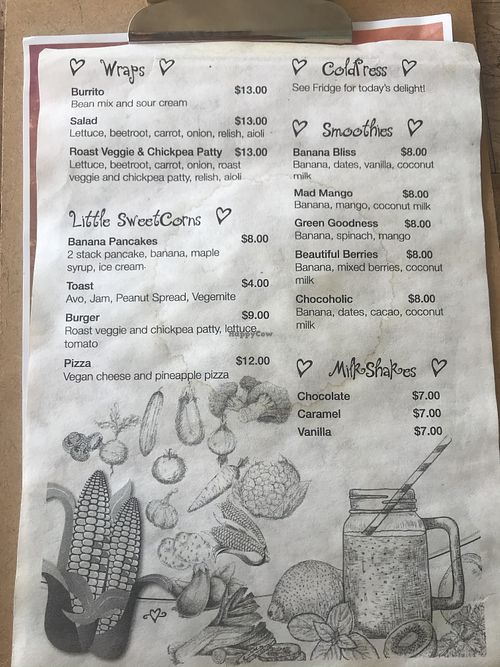 Wraps
Burrito $13.00
Bean mix and sour cream
Salad $13.00
Lettuce, beetroot, carrot, onion, relish, aioli
Roast Veggie & Chickpea Patty $13.00
Lettuce, beetroot, carrot, onion, roast
veggie and chickpea patty, relish, aioli
Little SweetCorns
Banana Pancakes $8.00
2 stack pancake, banana, maple
syrup, ice cream
Toast $4.00
Avo, Jam, Peanut Spread, Vegemite
Burger $9.00
Roast veggie and chickpea patty, lettuce,
tomato
Pizza $12.00
Vegan cheese and pineapple pizza
ColdPress
See Fridge for today's delight!
Smoothies
Banana Bliss $8.00
Banana, dates, vanilla, coconut
milk
Mad Mango $8.00
Banana, mango, coconut milk
Green Goodness $8.00
Banana, spinach, mango
Beautiful Berries $8.00
Banana, mixed berries, coconut
milk
Chocoholic $8.00
Banana, dates, cacao, coconut
milk
MilkShakes
Chocolate $7.00
Caramel $7.00
Vanilla $7.00
HappyCow